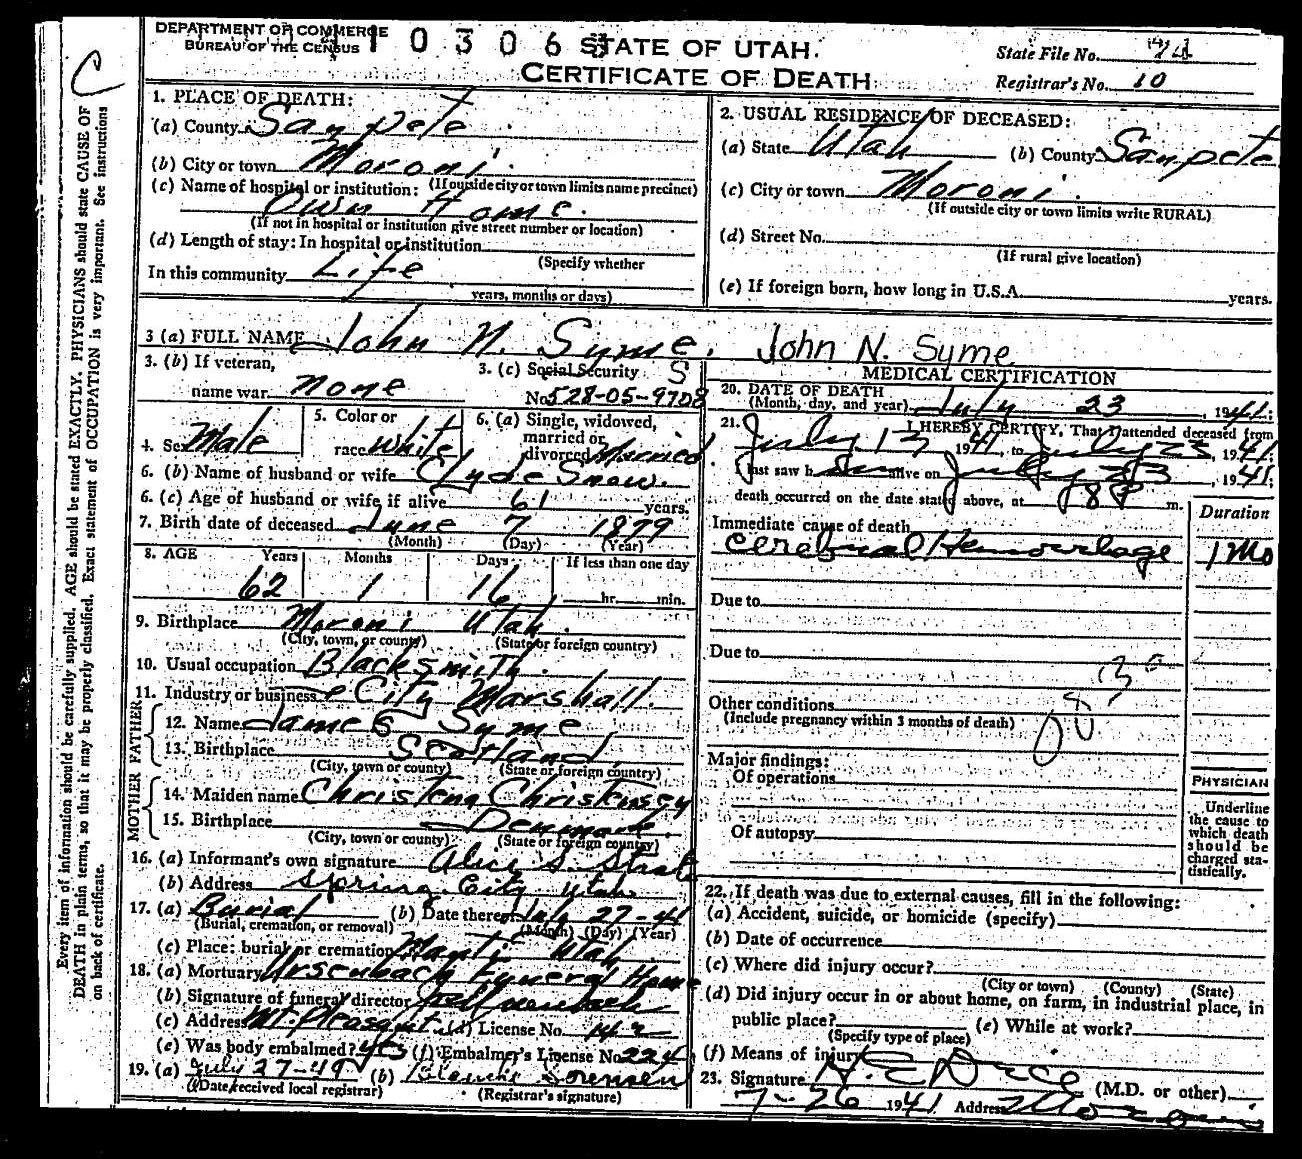 C
DEPARTMENT OF COMMERCE
BUREAU OF THE CENSUS
1 1 0 3 0 6
STATE OF UTAH.
CERTIFICATE OF DEATH
State File No.
Registrar's No. 10
Every item of information should be carefully supplied. AGE should be stated EXACTLY. PHYSICIANS should state CAUSE OF
DEATH in plain terms, so that it may be properly classified. Exact statement of OCCUPATION is very important. See instructions
on back of certificate.
1. PLACE OF DEATH:
(a) County Sanpete
(b) City or town Moroni
(If outside city or town limits name precinct)
(c) Name of hospital or institution:
Own Home.
(If not in hospital or institution give street number or location)
(d) Length of stay: In hospital or institution
(Specify whether
In this community Life
years, months or days)
2. USUAL RESIDENCE OF DECEASED:
(a) State Utah (b) County Sanpete
(c) City or town Moroni.
(If outside city or town limits write RURAL)
(d) Street No.
(If rural give location)
(e) If foreign born, how long in U.S.A. years.
3 (a) FULL NAME John N. Syme. John N. Syme
3. (b) If veteran,
name war none
3. (c) Social Security S
No. 528-05-9708
4. Sex Male
5. Color or
race white
6. (a) Single, widowed,
married or
divorced Married
6. (b) Name of husband or wife Clyde Snow.
6. (c) Age of husband or wife if alive 61 years.
7. Birth date of deceased June 7 1879
(Month) (Day) (Year)
8. AGE Years Months Days If less than one day
62 1 16 hr. min.
9. Birthplace Moroni Utah.
(City, town, or county) (State or foreign country)
10. Usual occupation Blacksmith.
11. Industry or business City Marshall.
FATHER
12. Name James Syme
13. Birthplace Scotland
(City, town or county) (State or foreign country)
MOTHER
14. Maiden name Christena Christensen
15. Birthplace Denmark.
(City, town or county) (State or foreign country)
16. (a) Informant's own signature Alice S. Strate
(b) Address Spring City Utah
17. (a) Burial (b) Date thereof July 27-41
(Burial, cremation, or removal) (Month) (Day) (Year)
(c) Place: burial or cremation Manti Utah
18. (a) Mortuary Ursenbach Funeral Home
(b) Signature of funeral director
(c) Address Mt. Pleasant (d) License No. 142
(e) Was body embalmed? yes (f) Embalmer's License No. 224
19. (a) July 27-41 (b) Blanche Sorensen
(Date received local registrar) (Registrar's signature)
MEDICAL CERTIFICATION
20. DATE OF DEATH
(Month, day, and year) July 23, 1941;
21. I HEREBY CERTIFY, That I attended deceased from
July 13 1941, to July 23, 1941;
last saw h im alive on July 23, 1941;
death occurred on the date stated above, at 8 P m.
Duration
Immediate cause of death
Cerebral Hemorrhage 1 Mo
Due to
Due to
Other conditions
(Include pregnancy within 3 months of death)
Major findings:
Of operations
Of autopsy
PHYSICIAN
Underline
the cause to
which death
should be
charged sta-
tistically.
22. If death was due to external causes, fill in the following:
(a) Accident, suicide, or homicide (specify)
(b) Date of occurrence
(c) Where did injury occur?
(City or town) (County) (State)
(d) Did injury occur in or about home, on farm, in industrial place, in
public place? (e) While at work?
(Specify type of place)
(f) Means of injury
23. Signature (M.D. or other)
7-26 1941 Address Moroni